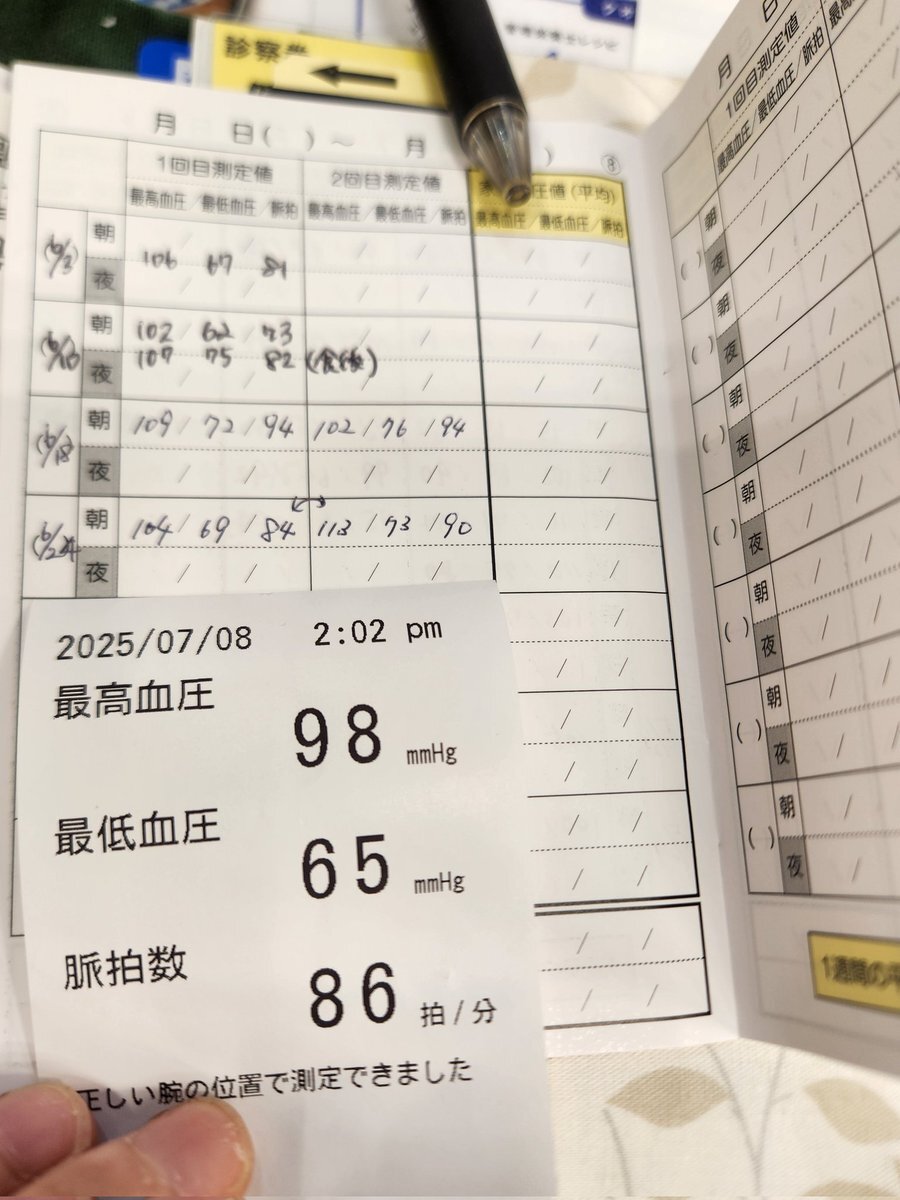 診察券
月 日( ) ~ 月 ) ⑧
1回目測定値 2回目測定値 圧値 (平均)
最高血圧/最低血圧/脈拍 最高血圧/最低血圧/脈拍 最高血圧/最低血圧/脈拍
朝
106 67 81
夜
朝 102 / 62 / 73
107 75 82 (食後)
夜
6/18 朝 109 / 72 / 94 102 / 76 / 94
夜
6/24 朝 104 / 69 / 84 113 / 73 / 90
夜
2025/07/08 2:02 pm
最高血圧
98 mmHg
最低血圧
65 mmHg
脈拍数
86 拍/分
正しい腕の位置で測定できました
月 日
1回目測定値
最高血圧/最低血圧/脈拍
( ) 朝
夜
( ) 朝
夜
( ) 朝
夜
( ) 朝
夜
( ) 朝
夜
( ) 朝
夜
( ) 朝
夜
1週間の